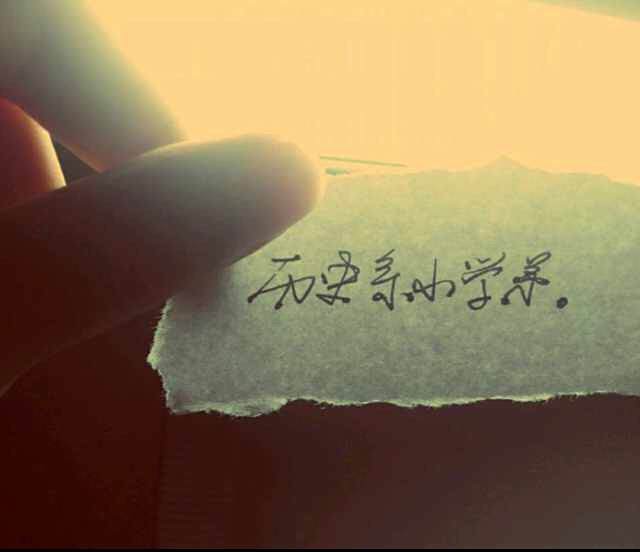 历史系小学弟。